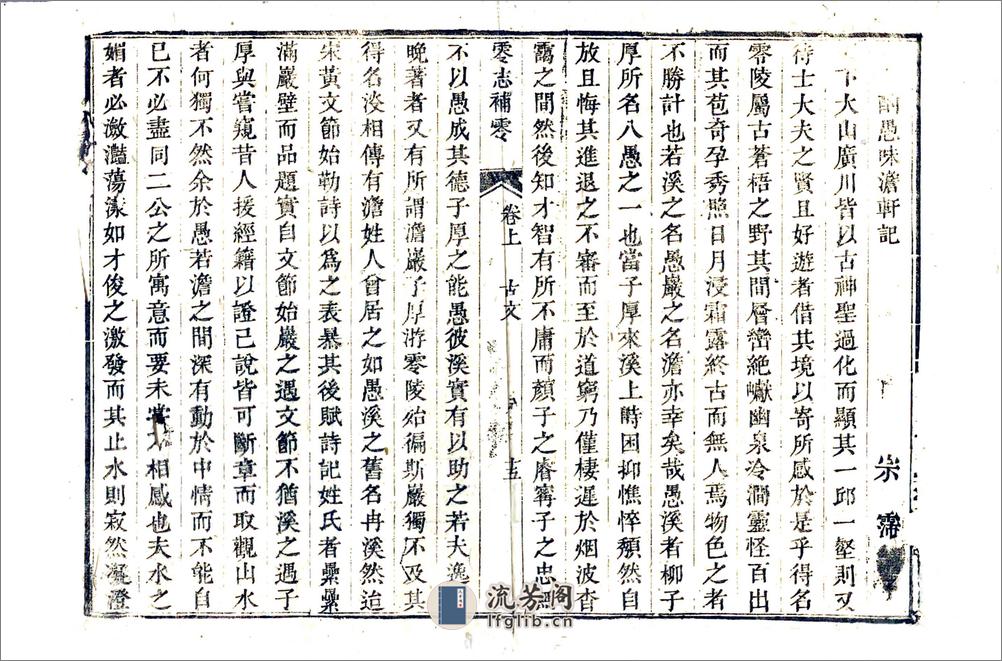 酌愚味澹軒記
宗霈
下大山廣川皆以古神聖過化而顯其一邱一壑則又
待士大夫之賢且好遊者借其境以寄所感於是乎得名
零陵屬古蒼梧之野其間層巒絶巘幽泉冷澗靈怪百出
而其苞奇孕秀照日月浸霜露終古而無人焉物色之者
不勝計也若溪之名愚巖之名澹亦幸矣哉愚溪者柳子
厚所名八愚之一也當子厚來溪上時困抑憔悴頹然自
放且悔其進退之不審而至於道窮乃僅棲遲於烟波杳
靄之間然後知才智有所不庸而顏子之睿寗子之忠
零志補零
卷上
古文
十五
不以愚成其德子厚之能愚彼溪實有以助之若夫逸
晚著者又有所謂澹巖子厚游零陵殆徧斯巖獨不及其
得名淺相傳有澹姓人曾居之如愚溪之舊名冉溪然迨
宋黃文節始勒詩以爲之表暴其後賦詩記姓氏者纍纍
滿巖壁而品題實自文節始巖之遇文節不猶溪之遇子
厚與嘗窺昔人援經籍以證己說皆可斷章而取觀山水
者何獨不然余於愚若澹之間深有動於中情而不能自
已不必盡同二公之所寓意而要未嘗不相感也夫水之
媚者必激灩蕩漾如才俊之激發而其止水則寂然凝澄
流芳阁
lfglib.cn